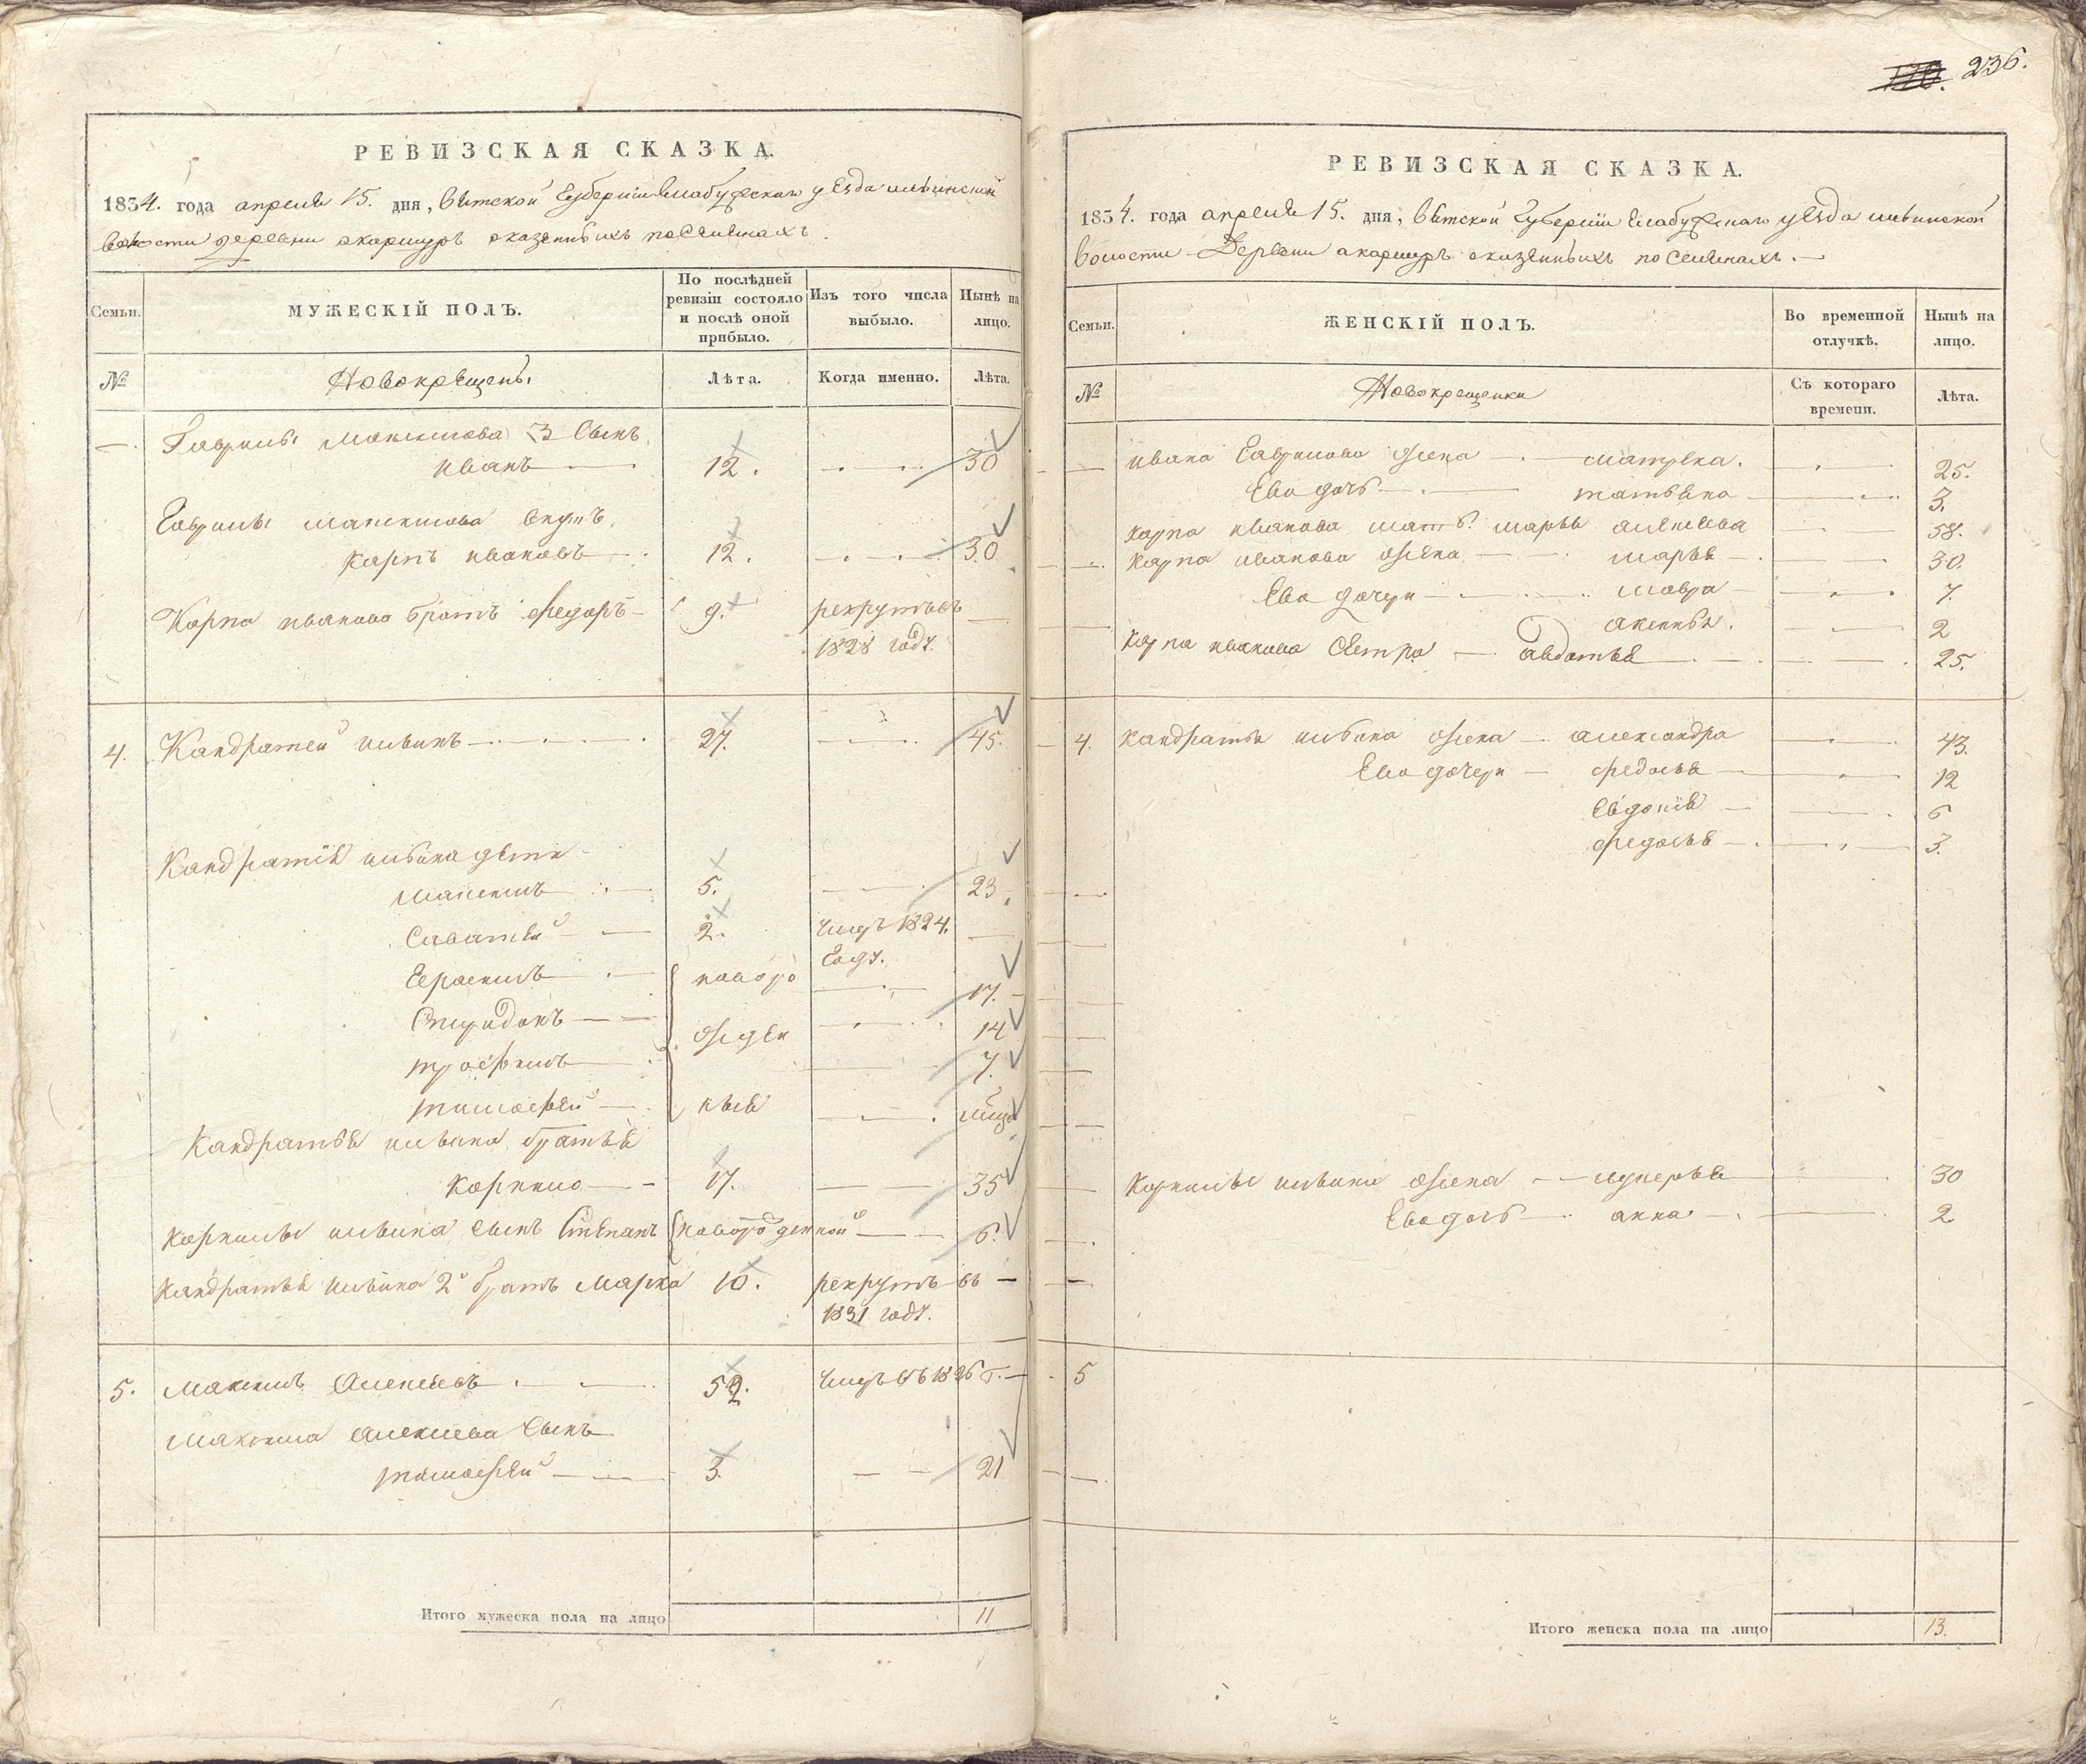 РЕВИЗСКАЯ СКАЗКА.
1834. года апреля 15. дня, Вятской Губернии Елабужскаго уезда
волости деревни оказенныхъ поселянахъ.
Семьи.
МУЖЕСКІЙ ПОЛЪ.
По послѣдней ревизіи состояло и послѣ оной прибыло.
Изъ того числа выбыло.
Нынѣ на лицо.
№
Новокрещены
Лѣта.
Когда именно.
Лѣта.
Гаврилы Максимова 3 Сынъ
иванъ 12. 30
Гаврилы максимова внукъ
карпъ ивановъ 12. 30
Карпа иванова братъ федоръ 9. рекрутъ въ
1828 году.
4. Кандратей ивинъ 27. 45.
Кандратія ивина дети
максимъ 5. 23
Саватей 2. умеръ 1824.
Году.
Герасимъ новоро 17.
Спиридонъ жден 14
трофимъ 7.
тимофей ные
Кандратья ивина братья
Корнило 17. 35
Корнилы ивина сынъ Степанъ новорожденной 6.
Кандратья ивина 2й братъ Марко 10. рекрутъ въ
1831 году.
5. Максимъ Алексеевъ 52. умеръ въ 1826 г.
Максима алексеева Сынъ
тимофей 3. 21
Итого мужеска пола на лицо 11
236.
РЕВИЗСКАЯ СКАЗКА.
1834. года апреля 15. дня, Вятской Губернии Елабужскаго уезда
волости Деревни оказенныхъ поселянахъ.
Семьи.
ЖЕНСКІЙ ПОЛЪ.
Во временной отлучкѣ.
Нынѣ на лицо.
№
Новокрещенки
Съ котораго времени.
Лѣта.
ивана Гаврилова жена матрена. 25.
Ево дочь татьяна 3.
карпа иванова мать марья алексеева 58.
карпа иванова жена марья 30.
Ево дочери мавра 7.
аксинья. 2
карпа иванова Сестра авдотья 25.
4. кандратья ивина жена александра 43.
Ево дочери федосья 12
Евдокія 6
федосья 3.
Корнилы ивина жена лукерья 30
Ево дочь анна 2
5
Итого женска пола на лицо 13.